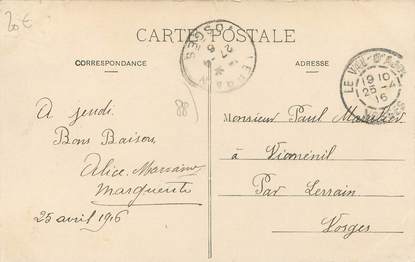 20 €
CARTE POSTALE
CORRESPONDANCE
ADRESSE
VOSGES
LE VAL D'AJOL
19 10
25 -4
16
88
A jeudi.
Bons Baisers
Alice
Marguerite
25 avril 1916
Monsieur Paul
à Vioménil
Par Lerrain
Vosges